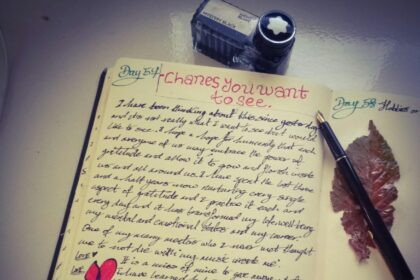 MYSTERY BLACK
Day 54
Chanes you want
to see.
Day 58 Hobbies
I have been thinking about this since yesterday
and do not really what I want to see
like to see. I hope for humanity that each
and everyone of us may embrace the power of
gratitude and allow it to grow and flourish inside
us and all around us. I have spent the last three
and a half years now nurturing every single
aspect of gratitude and I practice it each and
every day and it has transformed my life, well-being
my mental and emotional states and my career.
One of my many mentors who I never met thought
me to not die with my music inside me.
It is a